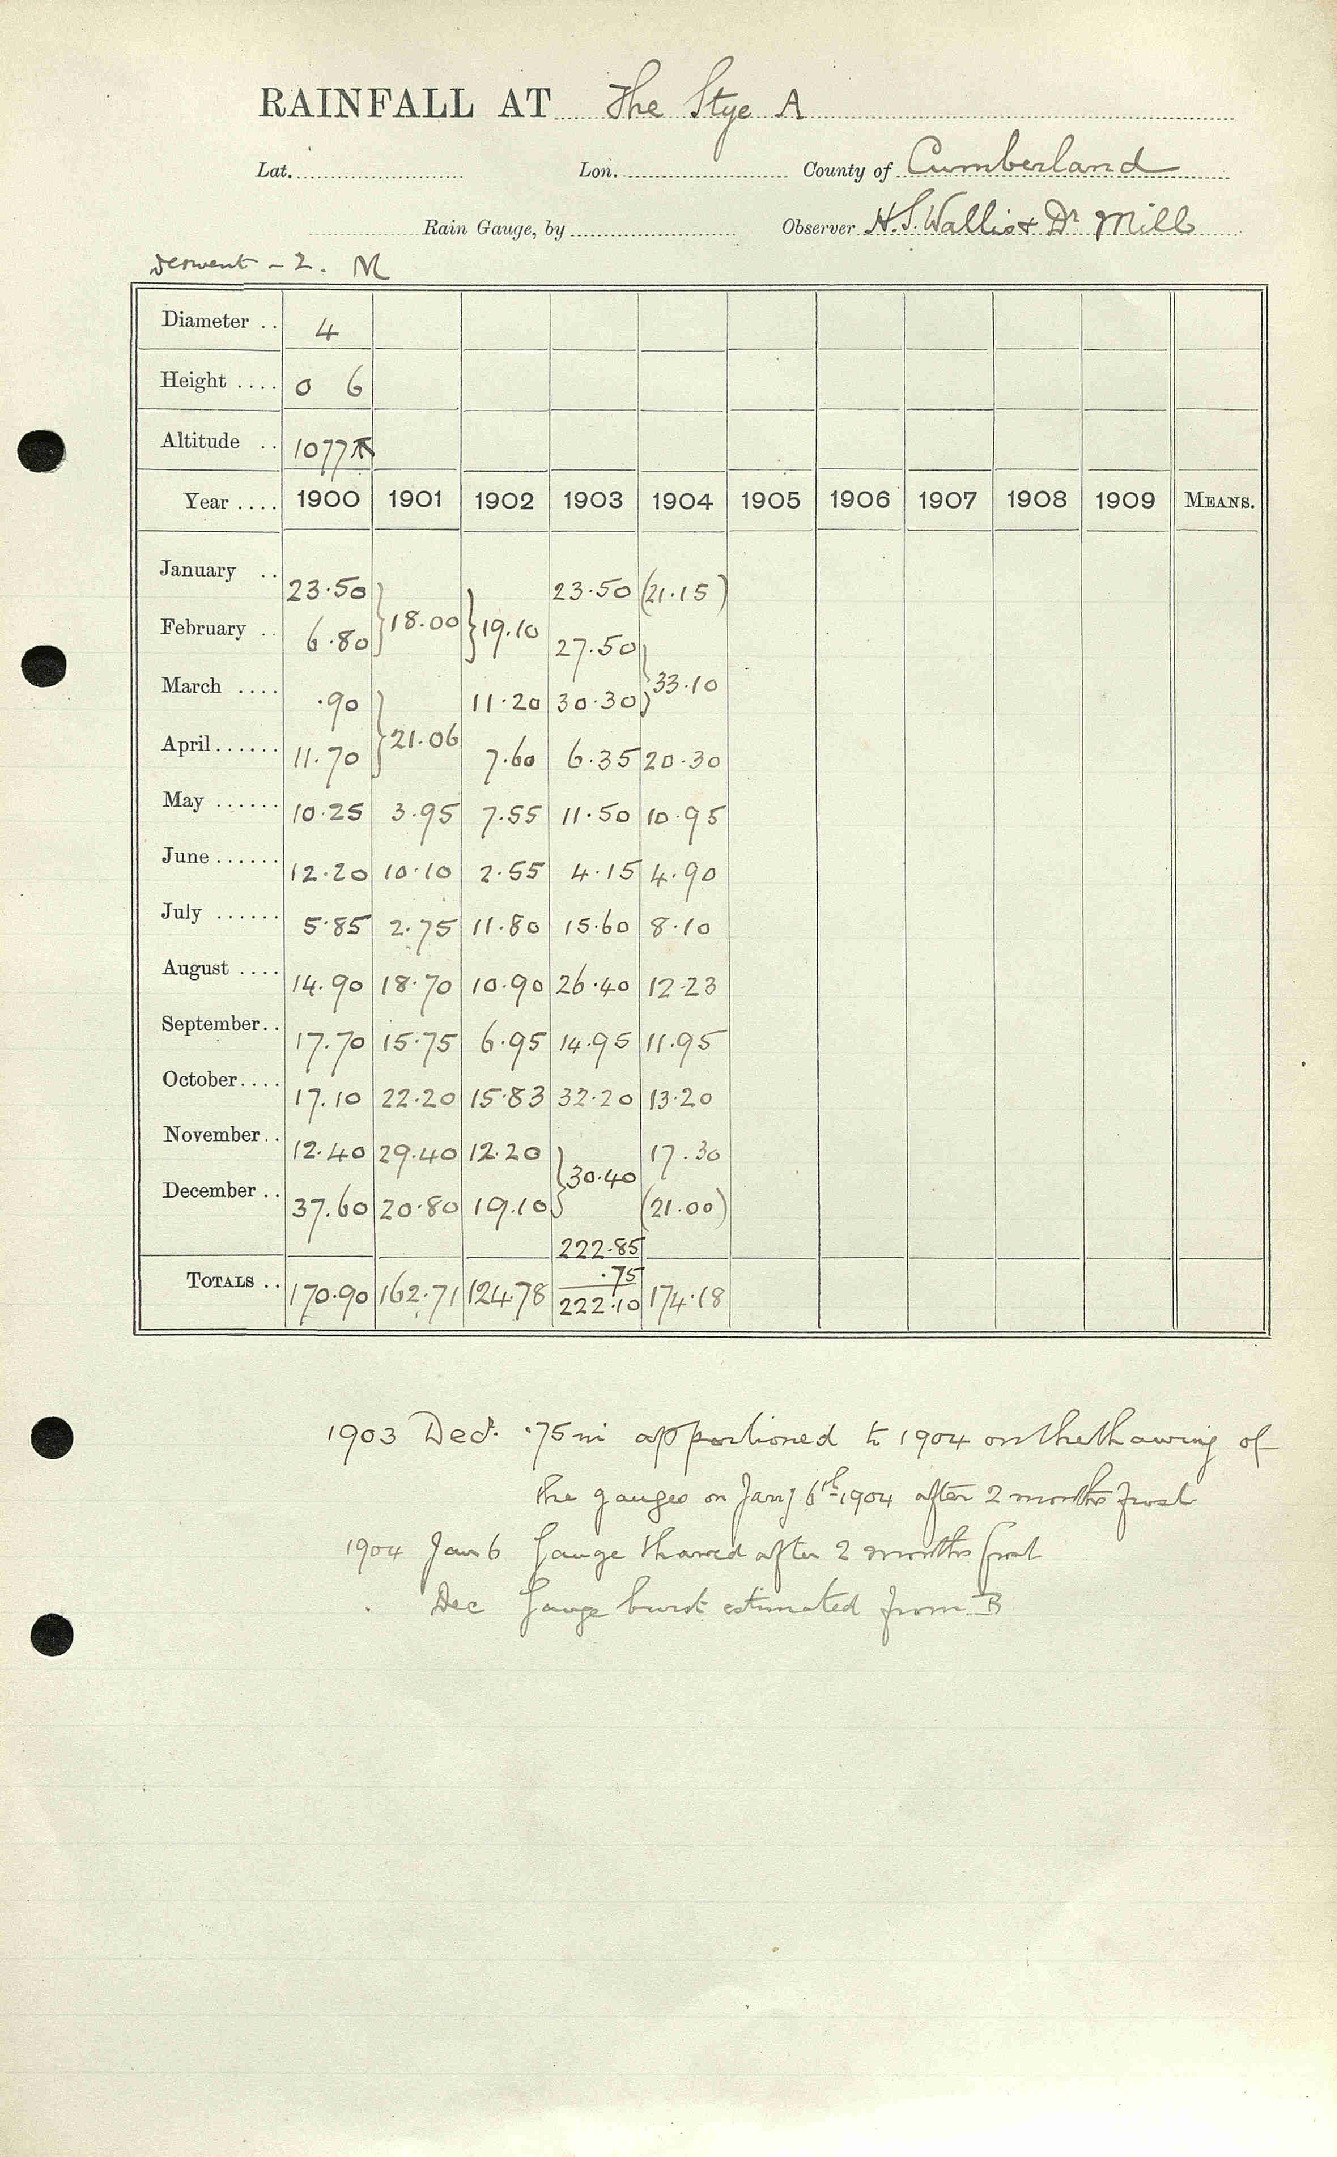 RAINFALL AT The Stye A
Lat. Lon. County of Cumberland
Rain Gauge, by Observer H.S. Wallis & Dr Mill
Derwent - 2. M
Diameter .. 4
Height .... 0 6
Altitude .. 1077
Year .... 1900 1901 1902 1903 1904 1905 1906 1907 1908 1909 MEANS.
January .. 23.50 23.50 (21.15)
February .. 6.80 } 18.00 } 19.10 27.50
March .... .90 11.20 30.30 } 33.10
April ...... 11.70 } 21.06 7.60 6.35 20.30
May ...... 10.25 3.95 7.55 11.50 10.95
June ...... 12.20 10.10 2.55 4.15 4.90
July ...... 5.85 2.75 11.80 15.60 8.10
August .... 14.90 18.70 10.90 26.40 12.23
September .. 17.70 15.75 6.95 14.95 11.95
October .... 17.10 22.20 15.83 32.20 13.20
November .. 12.40 29.40 12.20 17.30
December .. 37.60 20.80 19.10 } 30.40 (21.00)
222.85
.75
TOTALS .. 170.90 162.71 124.78 222.10 174.18
1903 Decr. .75 in apportioned to 1904 on the thawing of
the gauges on Jany 6th 1904 after 2 months frost
1904 Jan 6 Gauge thawed after 2 months frost
Dec Gauge burst estimated from B